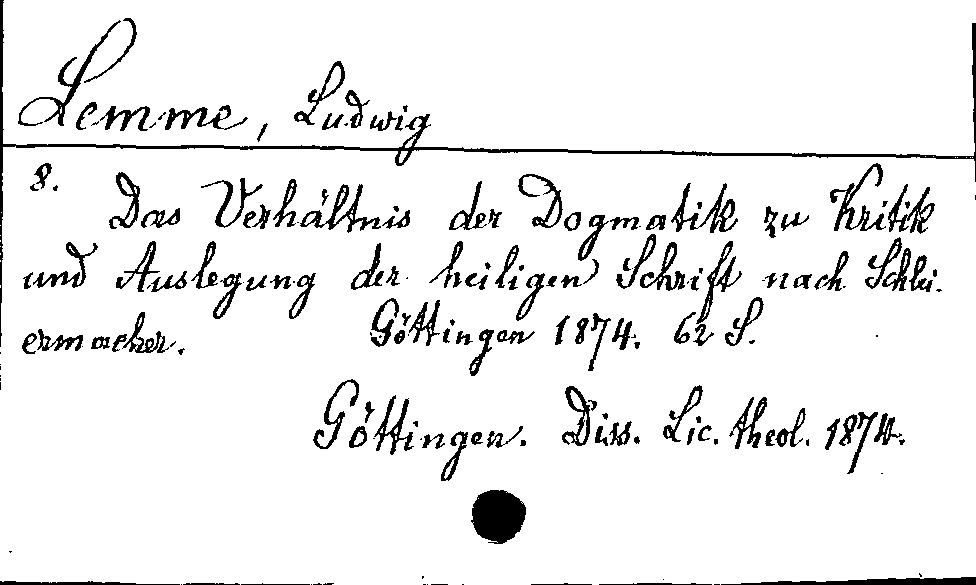 Lemme, Ludwig
8. Das Verhältnis der Dogmatik zu Kritik
und Auslegung der heiligen Schrift nach Schlei-
ermacher. Göttingen 1874. 62 S.
Göttingen. Diss. Lic. theol. 1874.